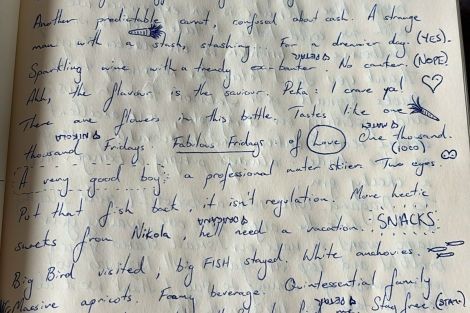 Another predictable carrot, confused about cash. A strange
man with a stash, stashing... For a dreamier day. (YES).
Sparkling wine with a trendy ex-banter. No canter. (NOPE!
Ahh, the flavour is the saviour. I crave ya!
There are flowers in this bottle. Tastes like one
thousand Fridays. Fabulous Fridays of Love. One thousand.
A very good boy: a professional water skier. Two eyes.
Put that fish back, it isn't regulation. More hectic
sweets from Nikola, he'll need a vacation. SNACKS
Big Bird visited, big FISH stayed. White anchovies.
Massive apricots. Foamy beverage. Quintessential family
Stay free.